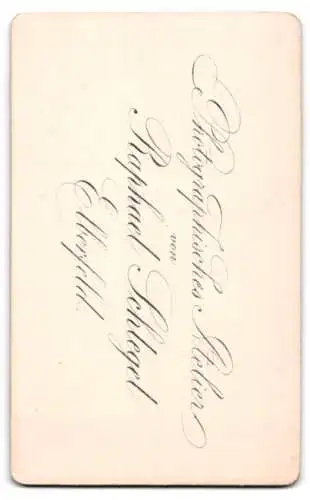 Photographisches Atelier
von
Raphael Schlegel.
Elberfeld.